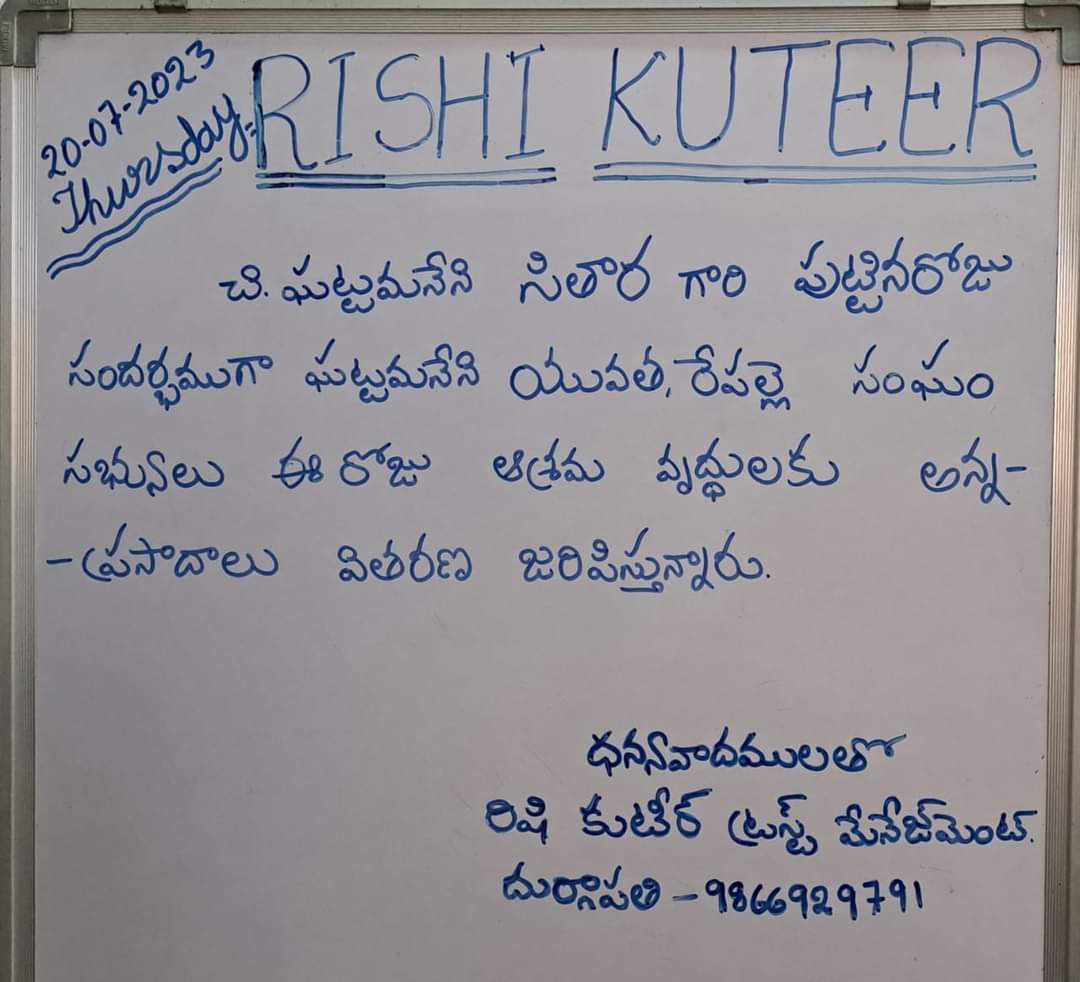 20-07-2023
Thursday:
RISHI KUTEER
చి. ఘట్టమనేని సితార గారి పుట్టినరోజు
సందర్భముగా ఘట్టమనేని యువత, రేపల్లె సంఘం
సభ్యులు ఈ రోజు ఆశ్రమ వృద్ధులకు అన్న-
-ప్రసాదాలు వితరణ జరిపిస్తున్నారు.
ధన్యవాదములతో
రిషి కుటీర్ ట్రస్ట్ మేనేజ్‌మెంట్.
దుర్గాపతి - 9866929791